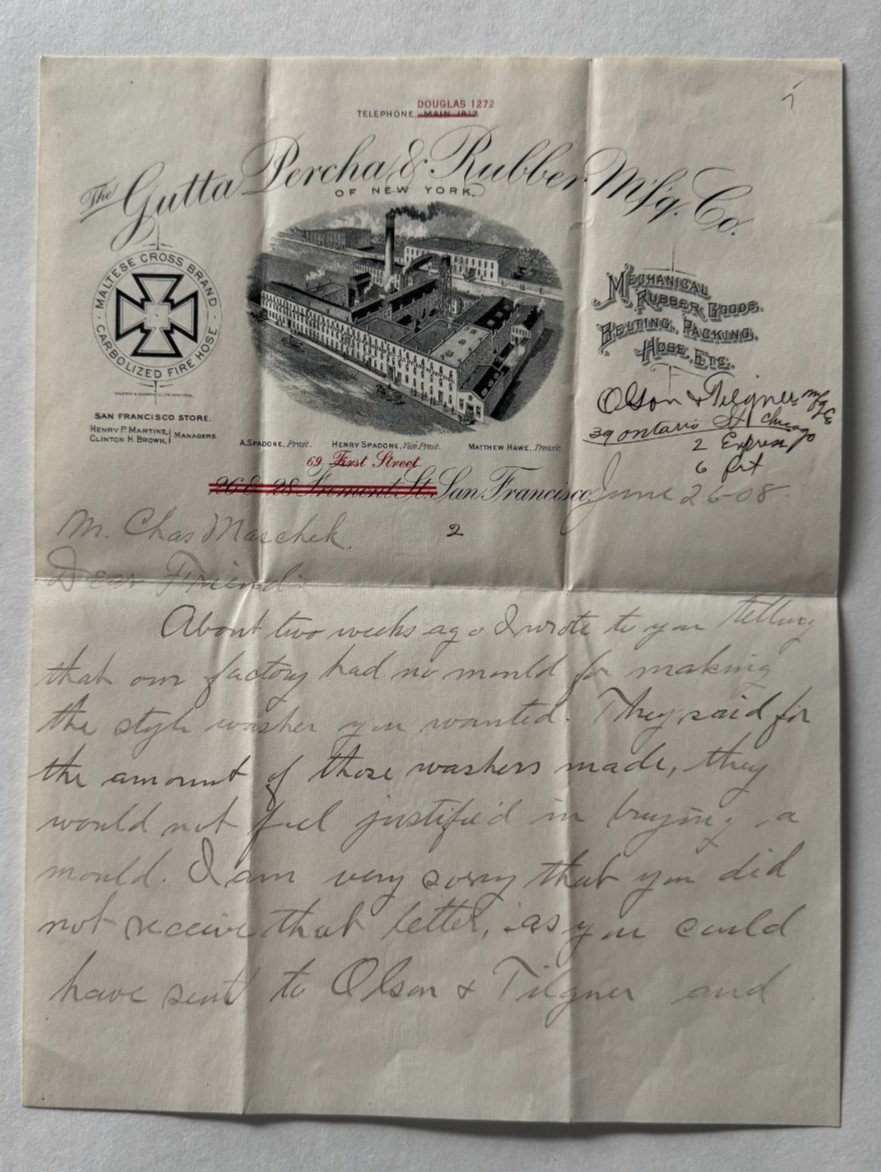 DOUGLAS 1272
TELEPHONE, MAIN 1813
The Gutta Percha & Rubber M'f'g. Co.
OF NEW YORK.
MALTESE CROSS BRAND
CARBOLIZED FIRE HOSE
MECHANICAL
RUBBER GOODS.
BELTING, PACKING,
HOSE, ETC.
SAN FRANCISCO STORE.
HENRY P. MARTINE,
CLINTON H. BROWN, MANAGERS.
A. SPADONE, Presdt. HENRY SPADONE, Vice Presdt. MATTHEW HAWE, Treasr.
Olson & Tilgner Mfg Co
39 Ontario St Chicago
2 Express
6 Frt
69 First Street
26 & 28 Fremont St. San Francisco June 26-08.
Mr. Chas Maschek. 2
Dear Friend:
About two weeks ago I wrote to you telling
that our factory had no mould for making
the style washer you wanted. They said for
the amount of those washers made, they
would not feel justified in buying a
mould. I am very sorry that you did
not receive that letter, as you could
have sent to Olson & Tilgner and